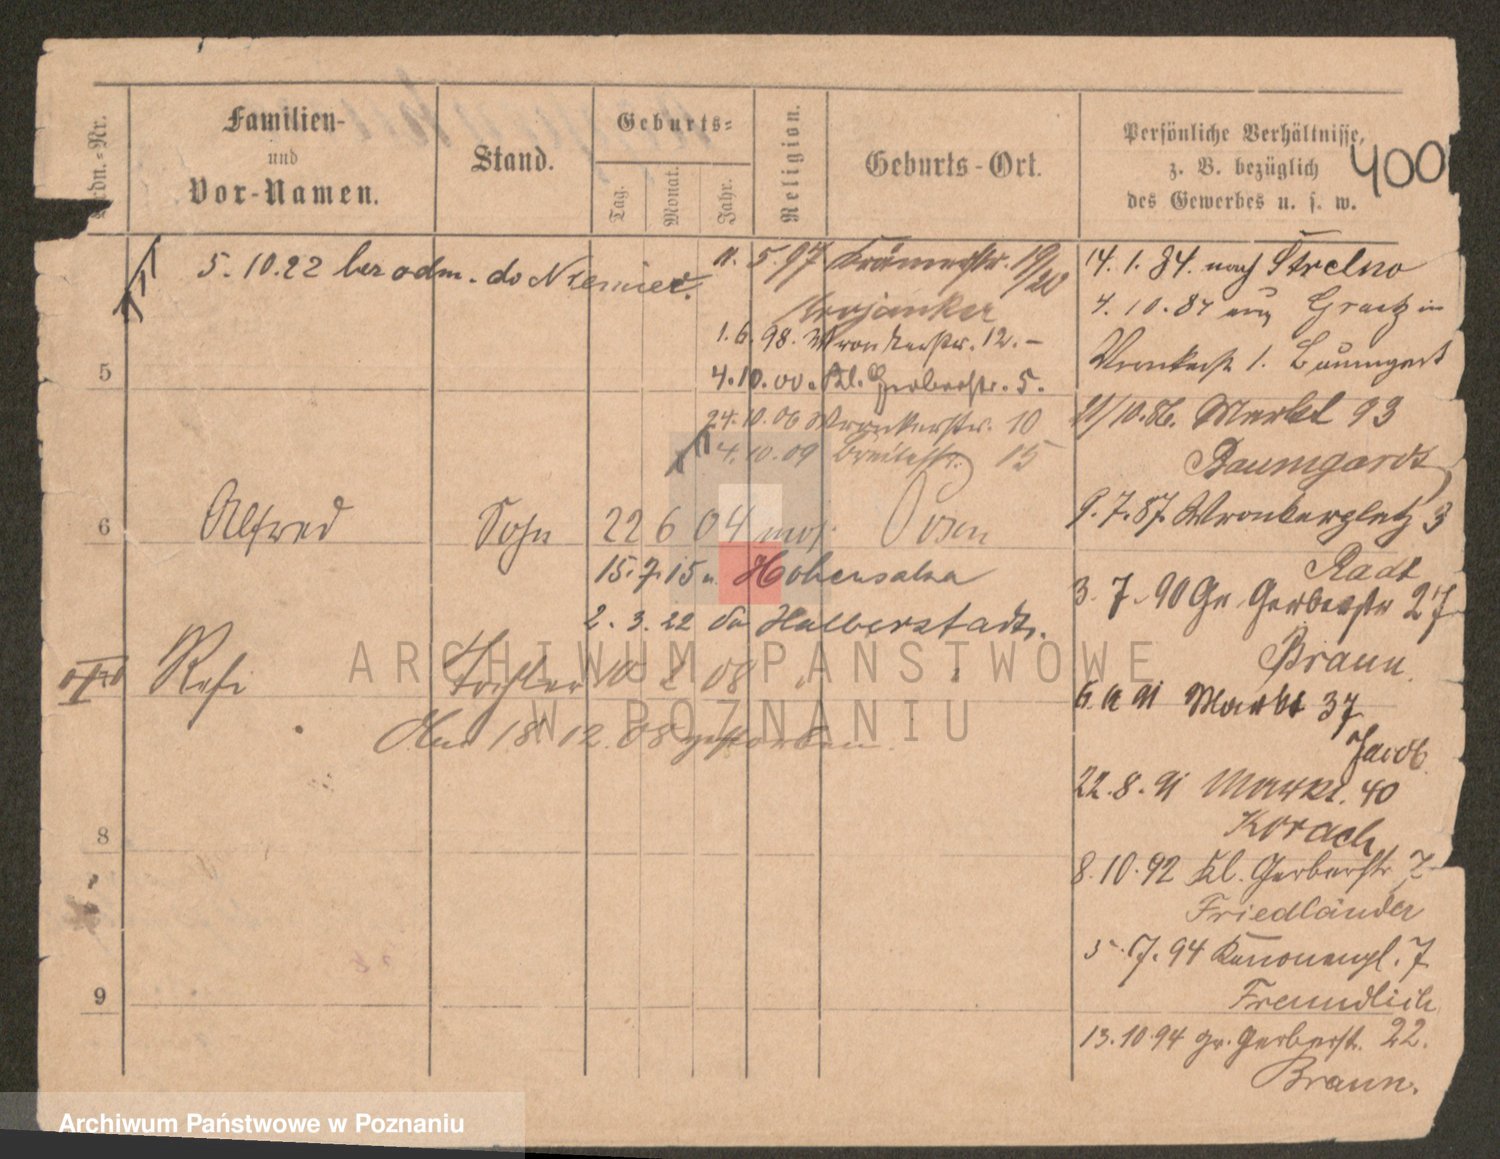 Ordn.-Nr.
Familien-
und
Vor-Namen.
Stand.
Geburts-
Tag.
Monat.
Jahr.
Religion.
Geburts-Ort.
Persönliche Verhältnisse,
z. B. bezüglich
des Gewerbes u. s. w.
400
5.10.22 bez odm. do Niemiec.
11.5.97 Krämerstr. 19/20
Krojanker
1.6.98. Wronkerstr. 12.-
5
4.10.00. Kl. Gerberstr. 5.
24.10.06 Wronkerstr. 10
4.10.09 Breitestr. 15
6 Alfred Sohn 22 6 04 mos. Posen
15.7.15 n. Hohensalza
2.3.22 Halberstadt.
Tochter 10 08
18 12. 08 gestorben.
8
9
14.1.84. nach Strelno
4.10.84 aus Graetz in
Wronkerstr 1. Baumgart
21/10.86. Markt 93
Baumgardt
9.7.87. Wronkerplatz 3
Radt
3.7.90 Gr. Gerberstr 27
Braun.
91 Markt 37
Jacob.
22.8.91 Markt. 40
Korach
8.10.92 Kl. Gerberstr 7
Friedländer
5.7.94 Kanonenpl. 7
Freundlich
13.10.94 gr. Gerberstr. 22.
Braun.
ARCHIWUM PAŃSTWOWE
W POZNANIU
Archiwum Państwowe w Poznaniu